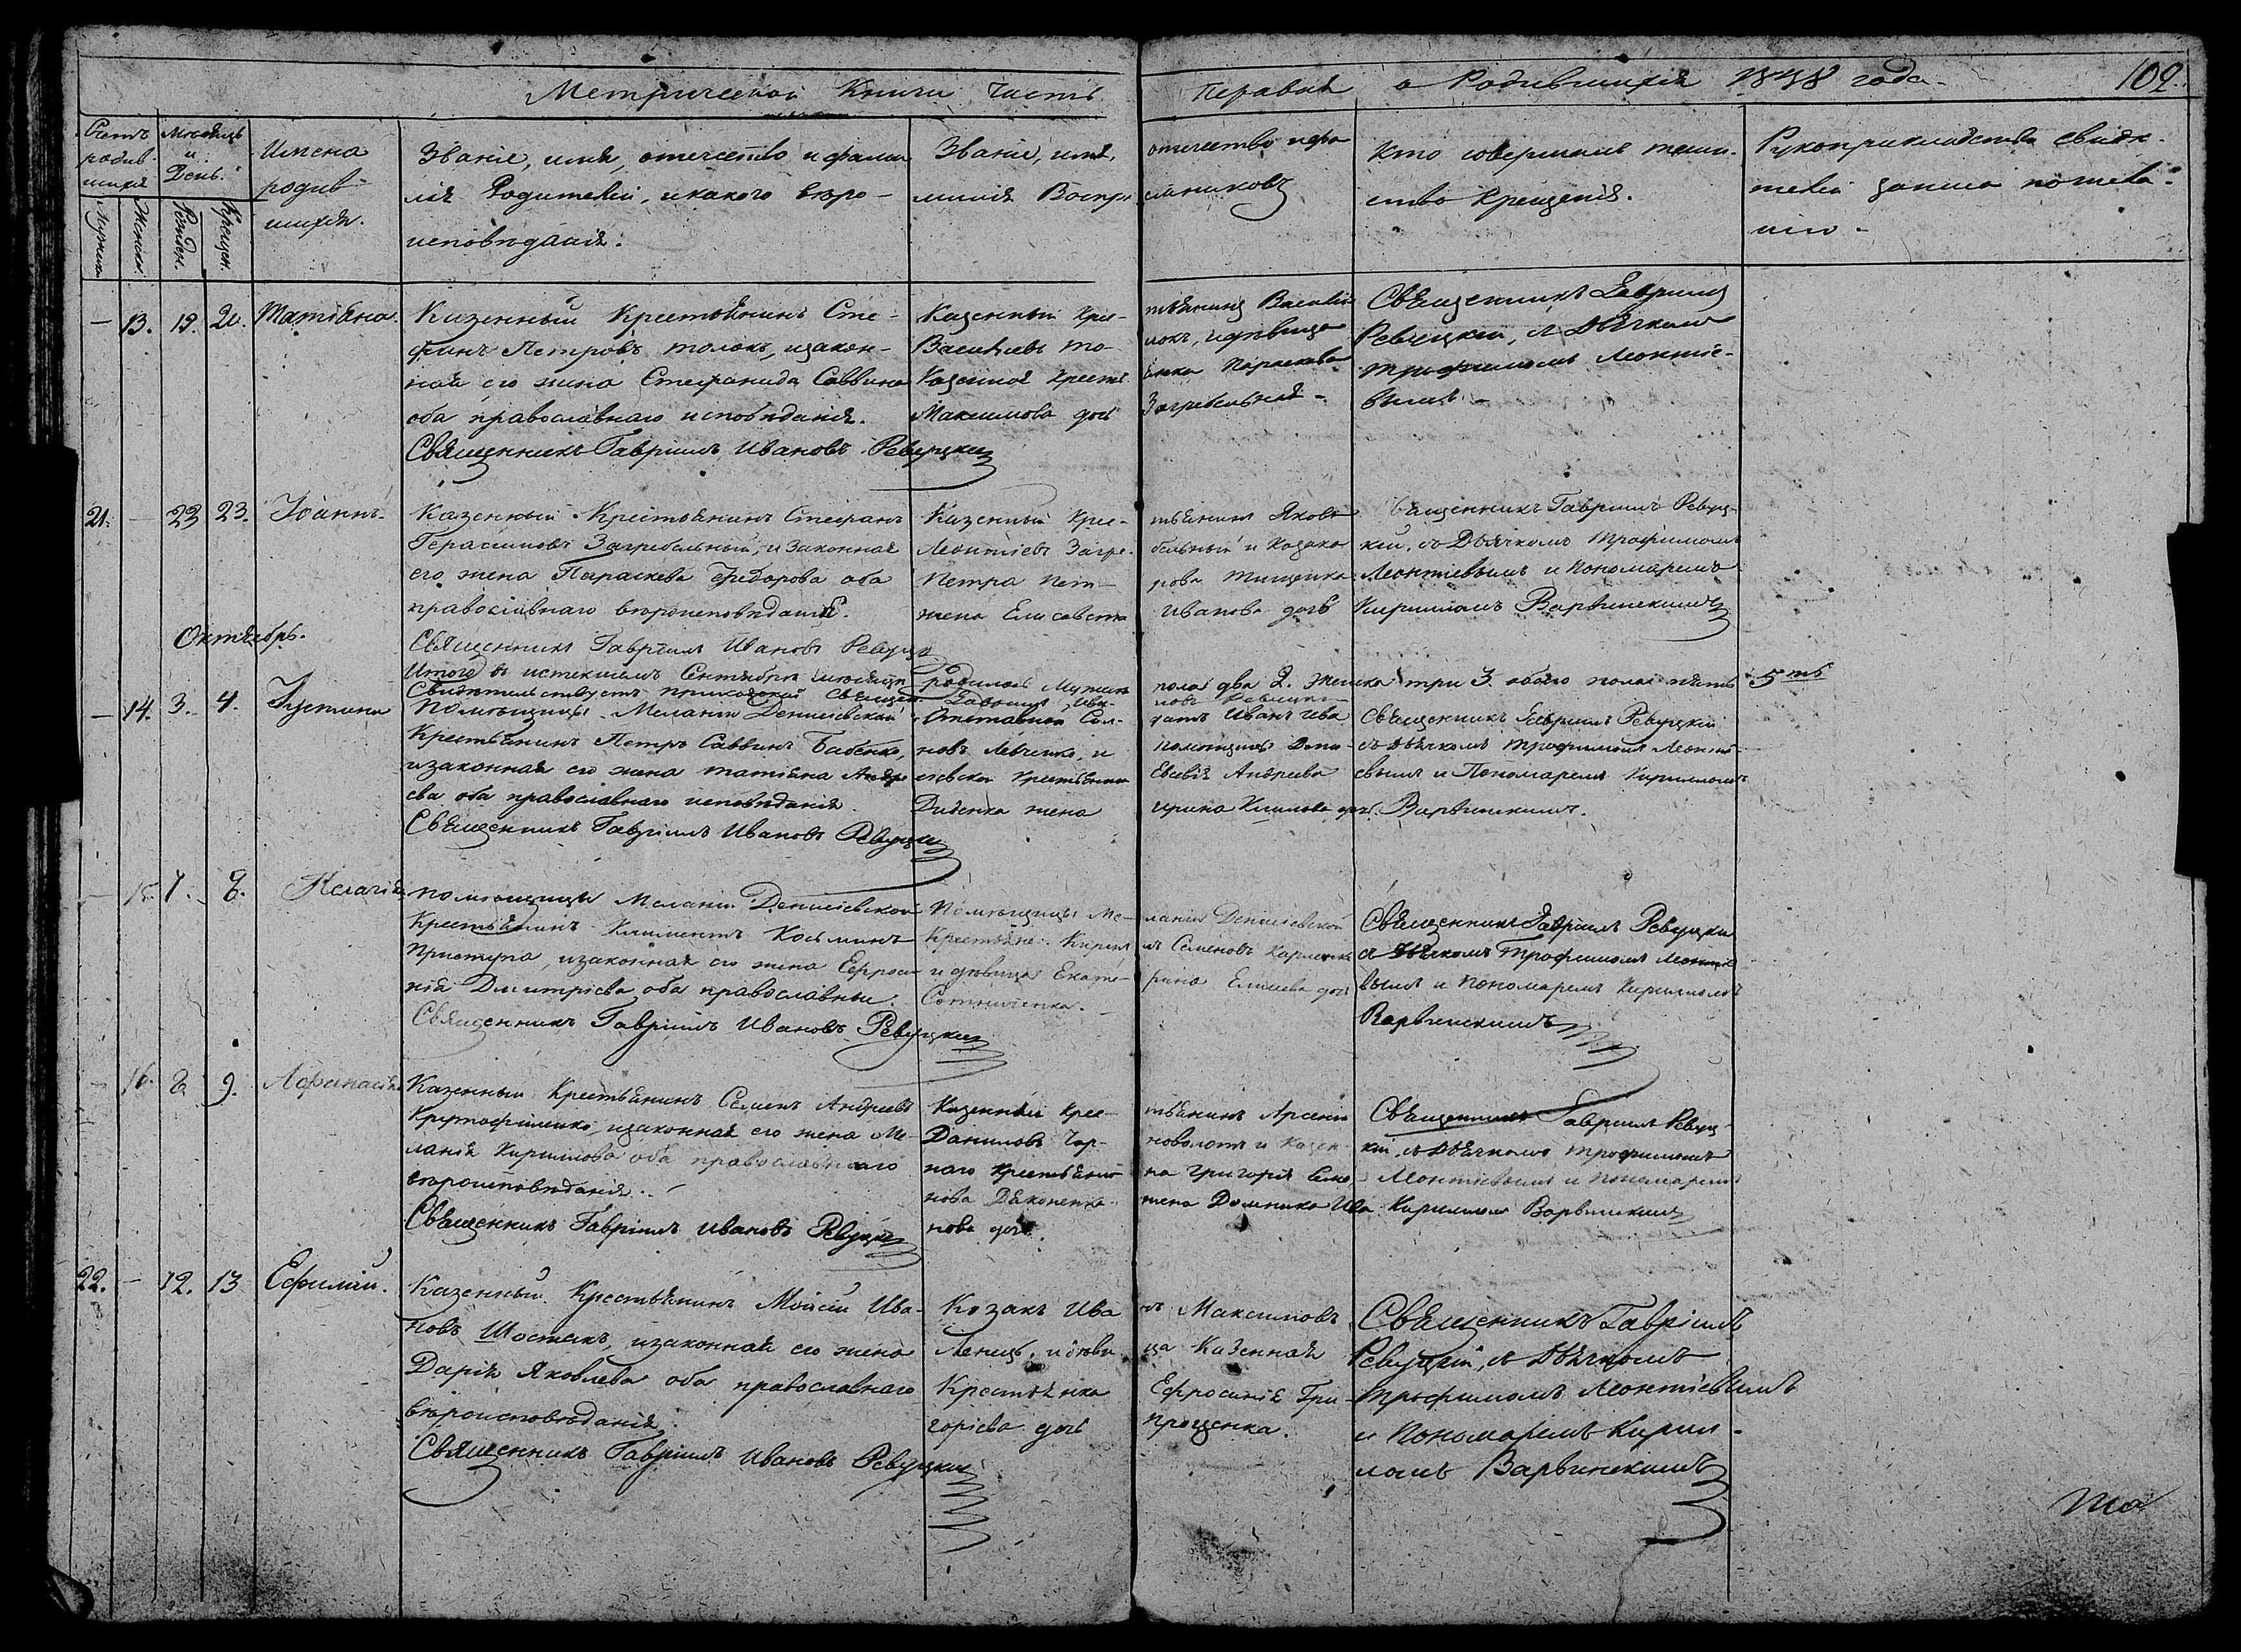 Метрической Книги Часть Первая о Родившихся 1848 года 102.
Счетъ родив-шихся
Мужеска
Женска
Месяцъ и День.
Рожден.
Крещен.
Имена родив-шихся.
Званіе, имя, отчество и фами-
лія Родителей, и какого веро-
исповѣданія.
Званіе, имя, отчество и фа-
милія Воспріемниковъ
Кто совершалъ таин-
ство Крещенія.
Рукоприкладство свидѣ-
телей записи по жела-
нію
— 13. 19. 20. Татіана.
Казенный Крестьянинъ Сте-
фанъ Петровъ Толокъ, и закон-
ная его жена Стефанида Саввина
оба православнаго исповѣданія.
Священникъ Гавріилъ Ивановъ Ревуцкій
Казенный Крес-тьянинъ Василій
Васильевъ То-локъ, и дѣвица
Казенная Кресть-янка Параскева
Максимова дочь Загребельная
Священникъ Гавріилъ
Ревуцкій, съ Дьячкомъ
Трофимомъ Леонтіе-
вымъ
21. — 22 23. Іоаннъ.
Казенный Крестьянинъ Стефанъ
Герасимовъ Загребельный, и законная
его жена Параскева Федорова оба
православнаго вероисповѣданія.
Священникъ Гавріилъ Ивановъ Ревуцкій
Казенный Крес-тьянинъ Яковъ
Леонтіевъ Загре-бельный и Козака
Петра Пет-рова Тищенка
жена Елисавета Иванова дочь
Священникъ Гавріилъ Ревуц-
кій, съ Дьячкомъ Трофимомъ
Леонтіевымъ и Пономаремъ
Кирилломъ Варвинскимъ
Октябрь.
Итого въ истекшемъ Сентябрѣ месяцѣ родилось Мужеска пола два 2. Женска три 3. обоего пола пять 5-ть
Свидѣтельствуетъ приходской Священ. Гавріилъ Ива-новъ Ревуцкій
— 14. 3. 4. Іустина
Помѣщицы Меланіи Денисіевской
Крестьянинъ Петръ Саввинъ Бабенко,
и законная его жена Татіана Андре
ева оба православнаго исповѣданія
Священникъ Гавріилъ Ивановъ Ревуцкій
Отставной Сол-датъ Иванъ Ива
новъ Левченко, и помѣщицы Дени-
сіевской Крестьянина Евсевія Андреева
Диденка жена Ирина Климова дочь.
Священникъ Гавріилъ Ревуцкій
съ Дьячкомъ Трофимомъ Леонтіе-
вымъ и Пономаремъ Кирилломъ
Варвинскимъ.
— 15. 7. 8. Пелагія
Помѣщицы Меланіи Денисіевской
Крестьянинъ Климентъ Косминъ
Приступа, и законная его жена Ефроси-
нія Дмитріева оба православные.
Священникъ Гавріилъ Ивановъ Ревуцкій
Помѣщицы Ме-ланіи Денисіевской
Крестьяне Кирил-лъ Семеновъ
и дѣвица Екате-рина Елисеева дочь
Сотниченка.
Священникъ Гавріилъ Ревуцкій
съ Дьячкомъ Трофимомъ Леонтіе
вымъ и Пономаремъ Кирилломъ
Варвинскимъ
— 16. 8 9. Афанасія
Казенный Крестьянинъ Семенъ Андреевъ
и законная его жена Ме-
ланія Кириллова оба православнаго
вероисповѣданія.
Священникъ Гавріилъ Ивановъ Ревуцкій
Казенный Крес-тьянинъ Арсеній
Даниловъ Чор-новолотъ и Казен-
наго Крестьяни-на Григорія Семе-
нова Дяконенка жена Домника Ива
нова дочь.
Священникъ Гавріилъ Ревуц-
кій, съ Дьячкомъ Трофимомъ
Леонтіевымъ и Пономаремъ
Кирилломъ Варвинскимъ
22. — 12. 13 Ефимій.
Казенный Крестьянинъ Мойсей Ива-
новъ Шостакъ, и законная его жена
Дарія Яковлева оба православнаго
вѣроисповѣданія.
Священникъ Гавріилъ Ивановъ Ревуцкій
Козакъ Ива-нъ Максимовъ
Ленецъ, и дѣви-ца Казенная
Крестьянка Ефросинія Гри-
горіева дочь Проценка.
Священникъ Гавріилъ
Ревуцкій, съ Дьячкомъ
Трофимомъ Леонтіевымъ
и Пономаремъ Кирил-
ломъ Варвинскимъ